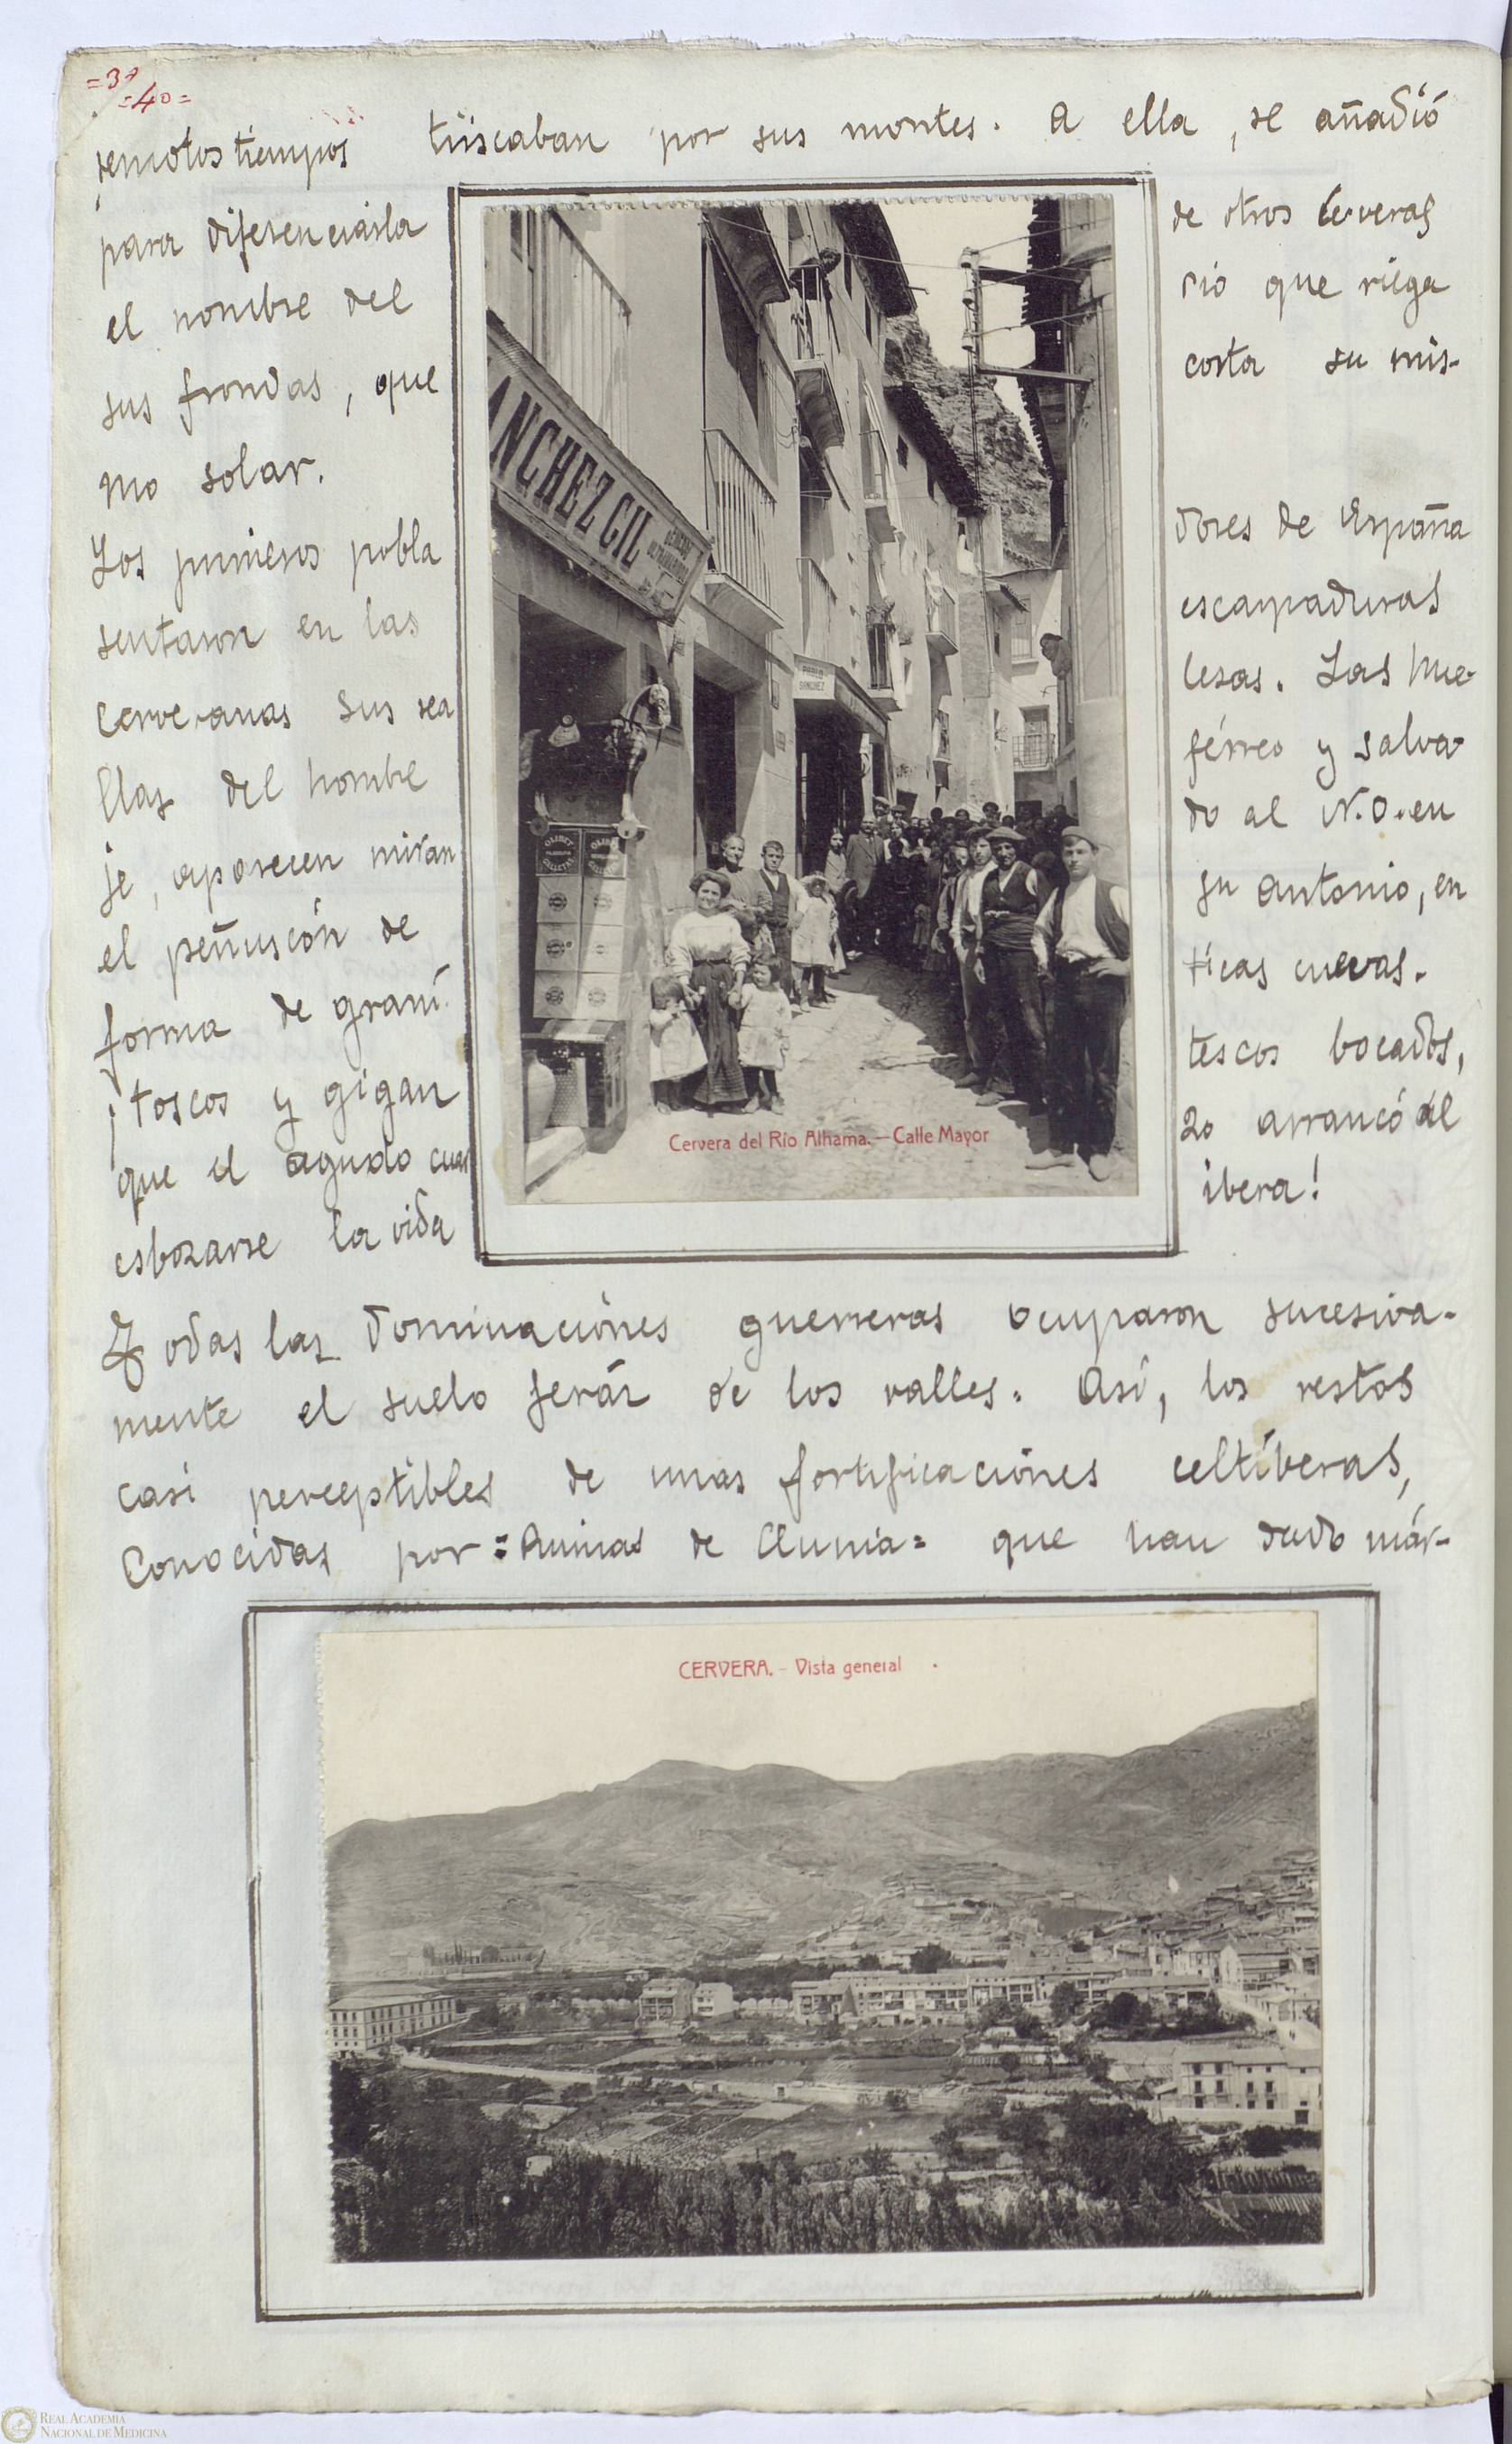 =39
=40=
remotos tiempos triscaban por sus montes. A ella, se añadió
para diferenciarla de otros Cerveras
el nombre del rio que riega
sus frondas, que corta su mis-
mo solar.
Los primeros pobla dores de España
sentaron en las escarpaduras
cerveranas sus rea lezas. Las hue-
llas del hombre férreo y salva-
je, aparecen miran do al N.O. en
el peñuscón de Sn Antonio, en
forma de graní ticas cuevas.
¡Toscos y gigan tescos bocados,
que el agudo cuar zo arrancó al
esbozarse la vida ibera!
Todas las dominaciones guerreras ocuparon sucesiva-
mente el suelo feráz de los valles. Así, los restos
casi perceptibles de unas fortificaciones celtíberas,
conocidas por =Auinas de Clunia= que han dado már-
ANCHEZ GIL
PABLO
SANCHEZ
OLIBET
GALLETAS
Cervera del Río Alhama.—Calle Mayor
CERVERA.- Vista general
REAL ACADEMIA
NACIONAL DE MEDICINA